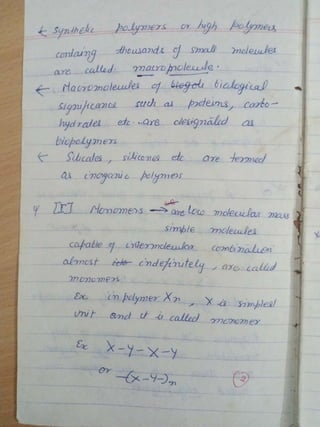 ← Synthetic polymers or high polymers,
containg thousands of small molecules
are called macromolecule.
← Macromolecules of biological
significance such as proteins, carbo-
hydrates etc. are designated as
biopolymers
← Silicates, silicones etc are termed
as inorganic polymers
4 [I] Monomers → are low molecular mass
simple molecules
capable of intermolecular combination
almost indefinitely, are called
monomers
Ex in polymer Xn, X is simplest
unit and it is called monomer
Ex X-Y-X-Y
or -(X-Y-)n
2